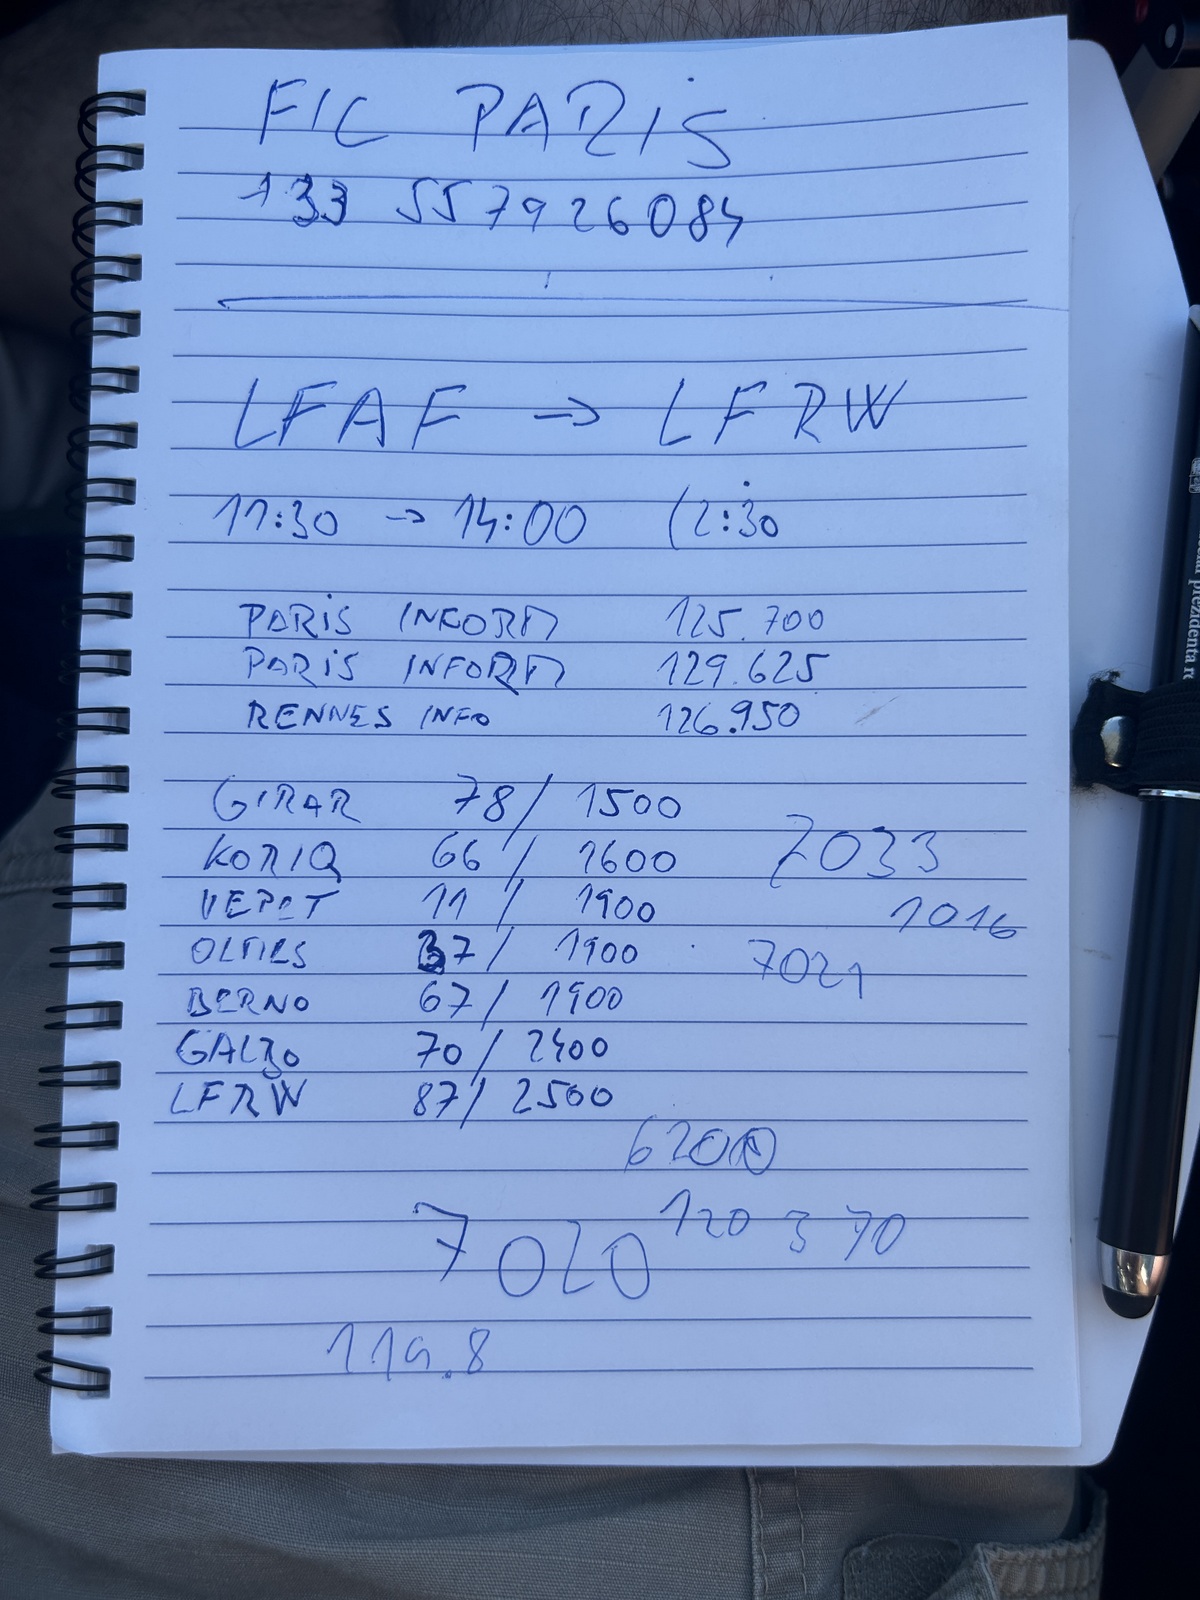 FIC PARiS
+33 557926084
LFAF → LFRW
11:30 → 14:00 (2:30
PARiS INFORM 125.700
PARiS INFORM 129.625
RENNES INFO 126.950
GIRAR 78/ 1500
KORIQ 66 / 1600 7033
11 / 1900
1016
37/ 1900 7021
BERNO 67/ 1900
70/ 2400
LFRW 87/ 2500
6200
120 370
7020
119.8
prezidenta